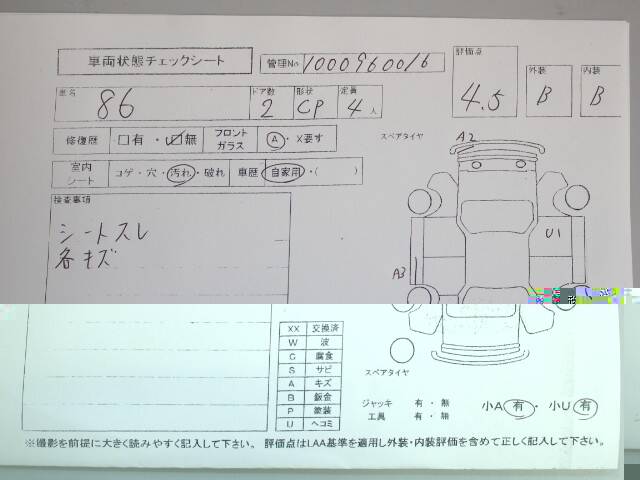 車両状態チェックシート
管理No 1000960016
評価点 4.5
外装 B
内装 B
車名 86
ドア数 2
形状 CP
定員 4人
修復歴 □有・☑無
フロントガラス A・X要す
スペアタイヤ
室内シート コゲ・穴・汚れ・破れ
車歴 自家用・( )
検査事項
シートスレ
各キズ
A2
U1
A3
XX 交換済
W 波
C 腐食
S サビ
A キズ
B 鈑金
P 塗装
U ヘコミ
スペアタイヤ
ジャッキ 有・無
工具 有・無
小A 有・小U 有
※撮影を前提に大きく読みやすく記入して下さい。評価点はLAA基準を適用し外装・内装評価を含めて正しく記入して下さい。